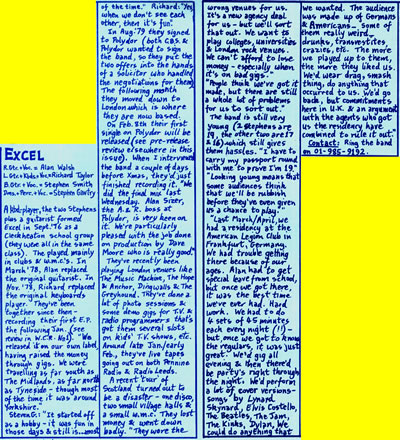 EXCEL
R.Gtr.+Voc. = Alan Walsh
L.Gtr.+Kbds.+Voc.= Richard Taylor
B.Gtr.+Voc. = Stephen Smith
Dms.+Perc.+Voc. = Stephen Oadley
A bass-player, the two Stephens
plus a guitarist formed
Excel in Sept.'76 as a
Cleckheaton school group
(they were all in the same
class). The played mainly
in clubs & w.m.c's. In
March '78, Alan replaced
the original guitarist. In
Nov.'78, Richard replaced
the original keyboards
player. They've been
together since then-
recording their first E.P.
the following Jan. (see
review in W.C.R. No1). "We
released it on our own label,
having raised the money
through gigs. We were
travelling as far south as
The Midlands, as far north
as Tyneside - though most
of the time it was around
Yorkshire."
Steven G: "It started off
as a hobby - it was fun in
those days & still is...most
of the time." Richard: "Yes,
when we don't see each
other, then it's fun"
In Aug.'79 they signed
to Polydor (both C.B.S. &
Polydor wanted to sign
the band, so they put the
two offers into the hands
of a solicitor who handled
the negotiations for them)
The following month
they moved down to
London which is where
they are now based.
On Feb. 8th their first
single on Polydor will be
released (see pre-release
review elsewhere in this
issue). When I interviewed
the band a couple of days
before Xmas, they'd just
finished recording it. "We
did the final mix last
Wednesday. Alan Sizer,
the A.& R. boss at
Polydor, is very keen on
it. We're particularly
pleased with the job done
on production by Dave
Moore who is really good".
They've recently been
playing London venues like
The Music Machine, The Hope
& Anchor, Dingwalls & The
Greyhound. They've done a
lot of photo sessions &
some demo gigs for T.V. &
radio programmers & that's
got them several slots
on kids' T.V. shows, etc.
Around late Jan/early
Feb., they've live tapes
going out on both Pennine
Radio & Radio Leeds.
A recent tour of
Scotland turned out to
be a disaster - one disco,
two small village halls &
a small w.m.c. They lost
money & went down
badly. "They were the
wrong venues for us.
It's a new agency deal
for us - but we'll sort
that out. We want to
play colleges, universities
& London rock venues.
We can't afford to lose
money - especially when
it's on bad gigs."
"People think we've got it
made, but there are still
a whole lot of problems
for us to sort out".
The band is still very
young (2 Stephens are
19, the other two are 17
& 16) which still gives
them hassles. "I have to
carry my passport round
with me to prove I'm 19."
Looking young means that
some audiences think
that we'll be rubbish
before they've even given
us a chance to play."
"Last March/April, we
had a residency at the
American Legion Club in
Frankfurt, Germany.
We had trouble getting
there because of our
ages. Alan had to get
special leave from school,
but once we got there,
it was the best time
we've ever had. Hard
work. We had to do
4 sets of 45 minutes
each every night (!!) -
but once we got to know
the regulars, it was just
great. We'd gig all
evening & then there'd
be party's right through
the night. We'd perform
a lot of cover versions-
songs by Lynard
Skynard, Elvis Costello,
The Beatles, The Jam,
The Kinks, Dylan, We
could do anything that
we wanted. The audience
was made up of Germans
& Americans - some of
them really weird -
drunks, transvestites,
crazies, etc. The more
we played up to them,
the more they liked us.
We'd wear drag, smash
thing, do anything that
occurred to us. We'd go
back, but commitments
here in U.K. & an argument
with the agents who got
us the residency have
combined to rule it out."
Contact: Ring the band
on 01-985-9192.